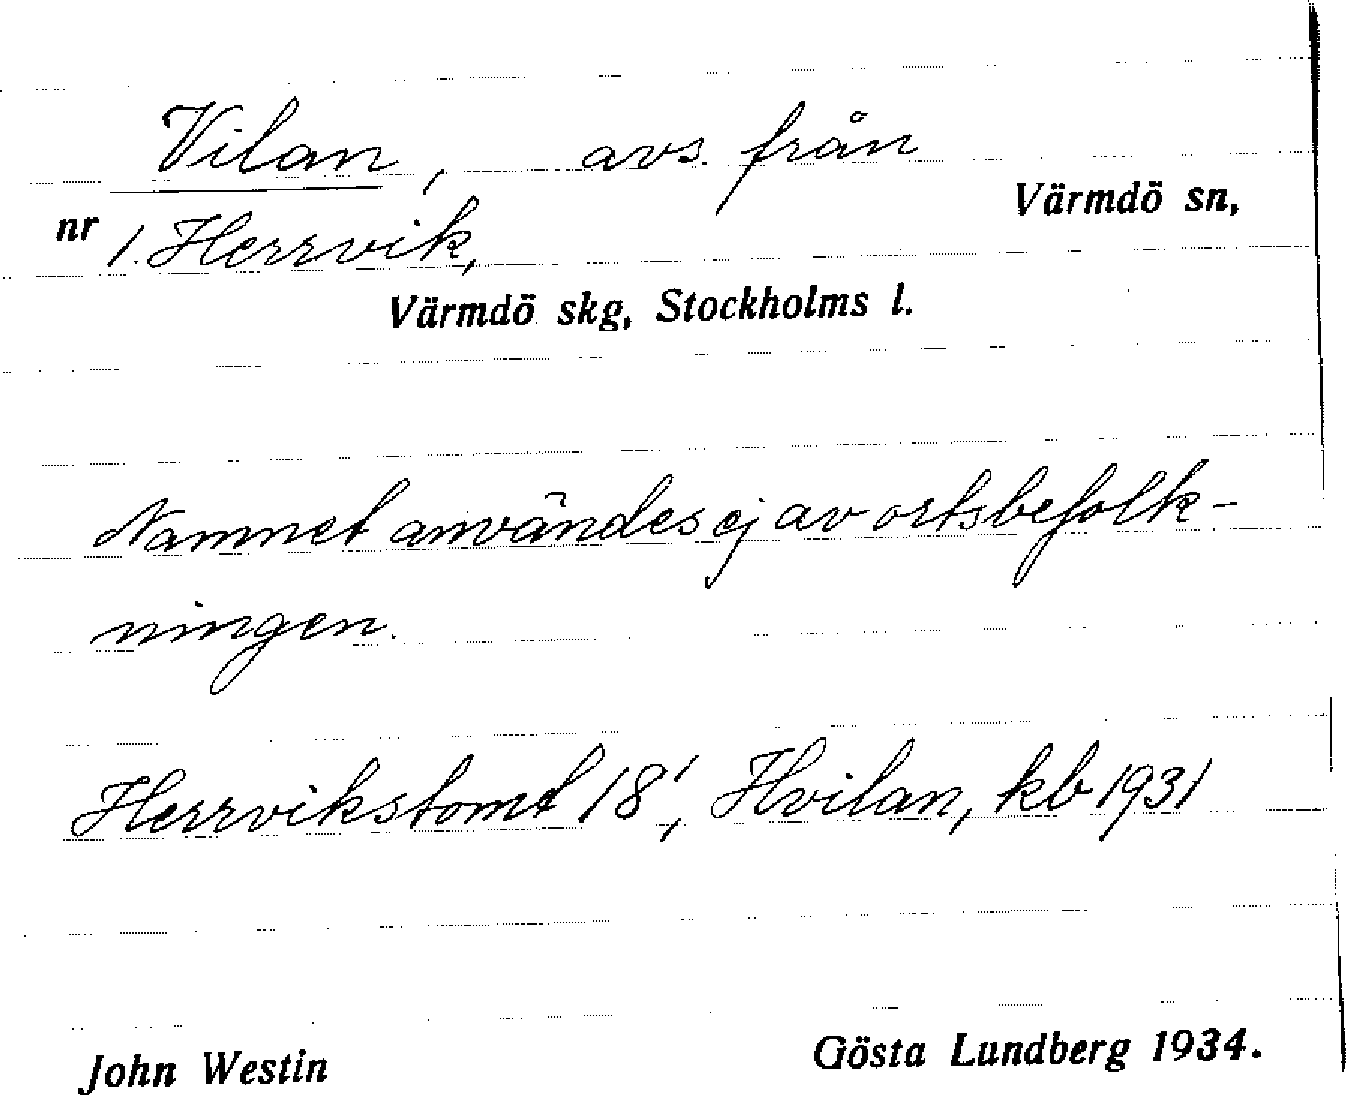 Vilan, avs. från
Värmdö sn,
nr 1. Herrvik,
Värmdö skg, Stockholms l.
Namnet användes ej av ortsbefolk-
ningen.
Herrvikstomt 18', Hvilan, kb 1931
John Westin Gösta Lundberg 1934.